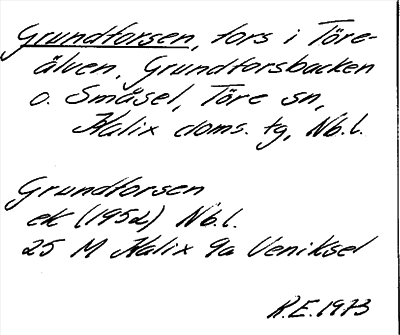 Grundforsen, fors i Töre-
älven, Grundforsbacken
o. Småsel, Töre sn,
Kalix doms. tg, Nb.l.
Grundforsen
ek (1952) Nb.l.
25 M Kalix 9a Veniksel
R.E. 1973